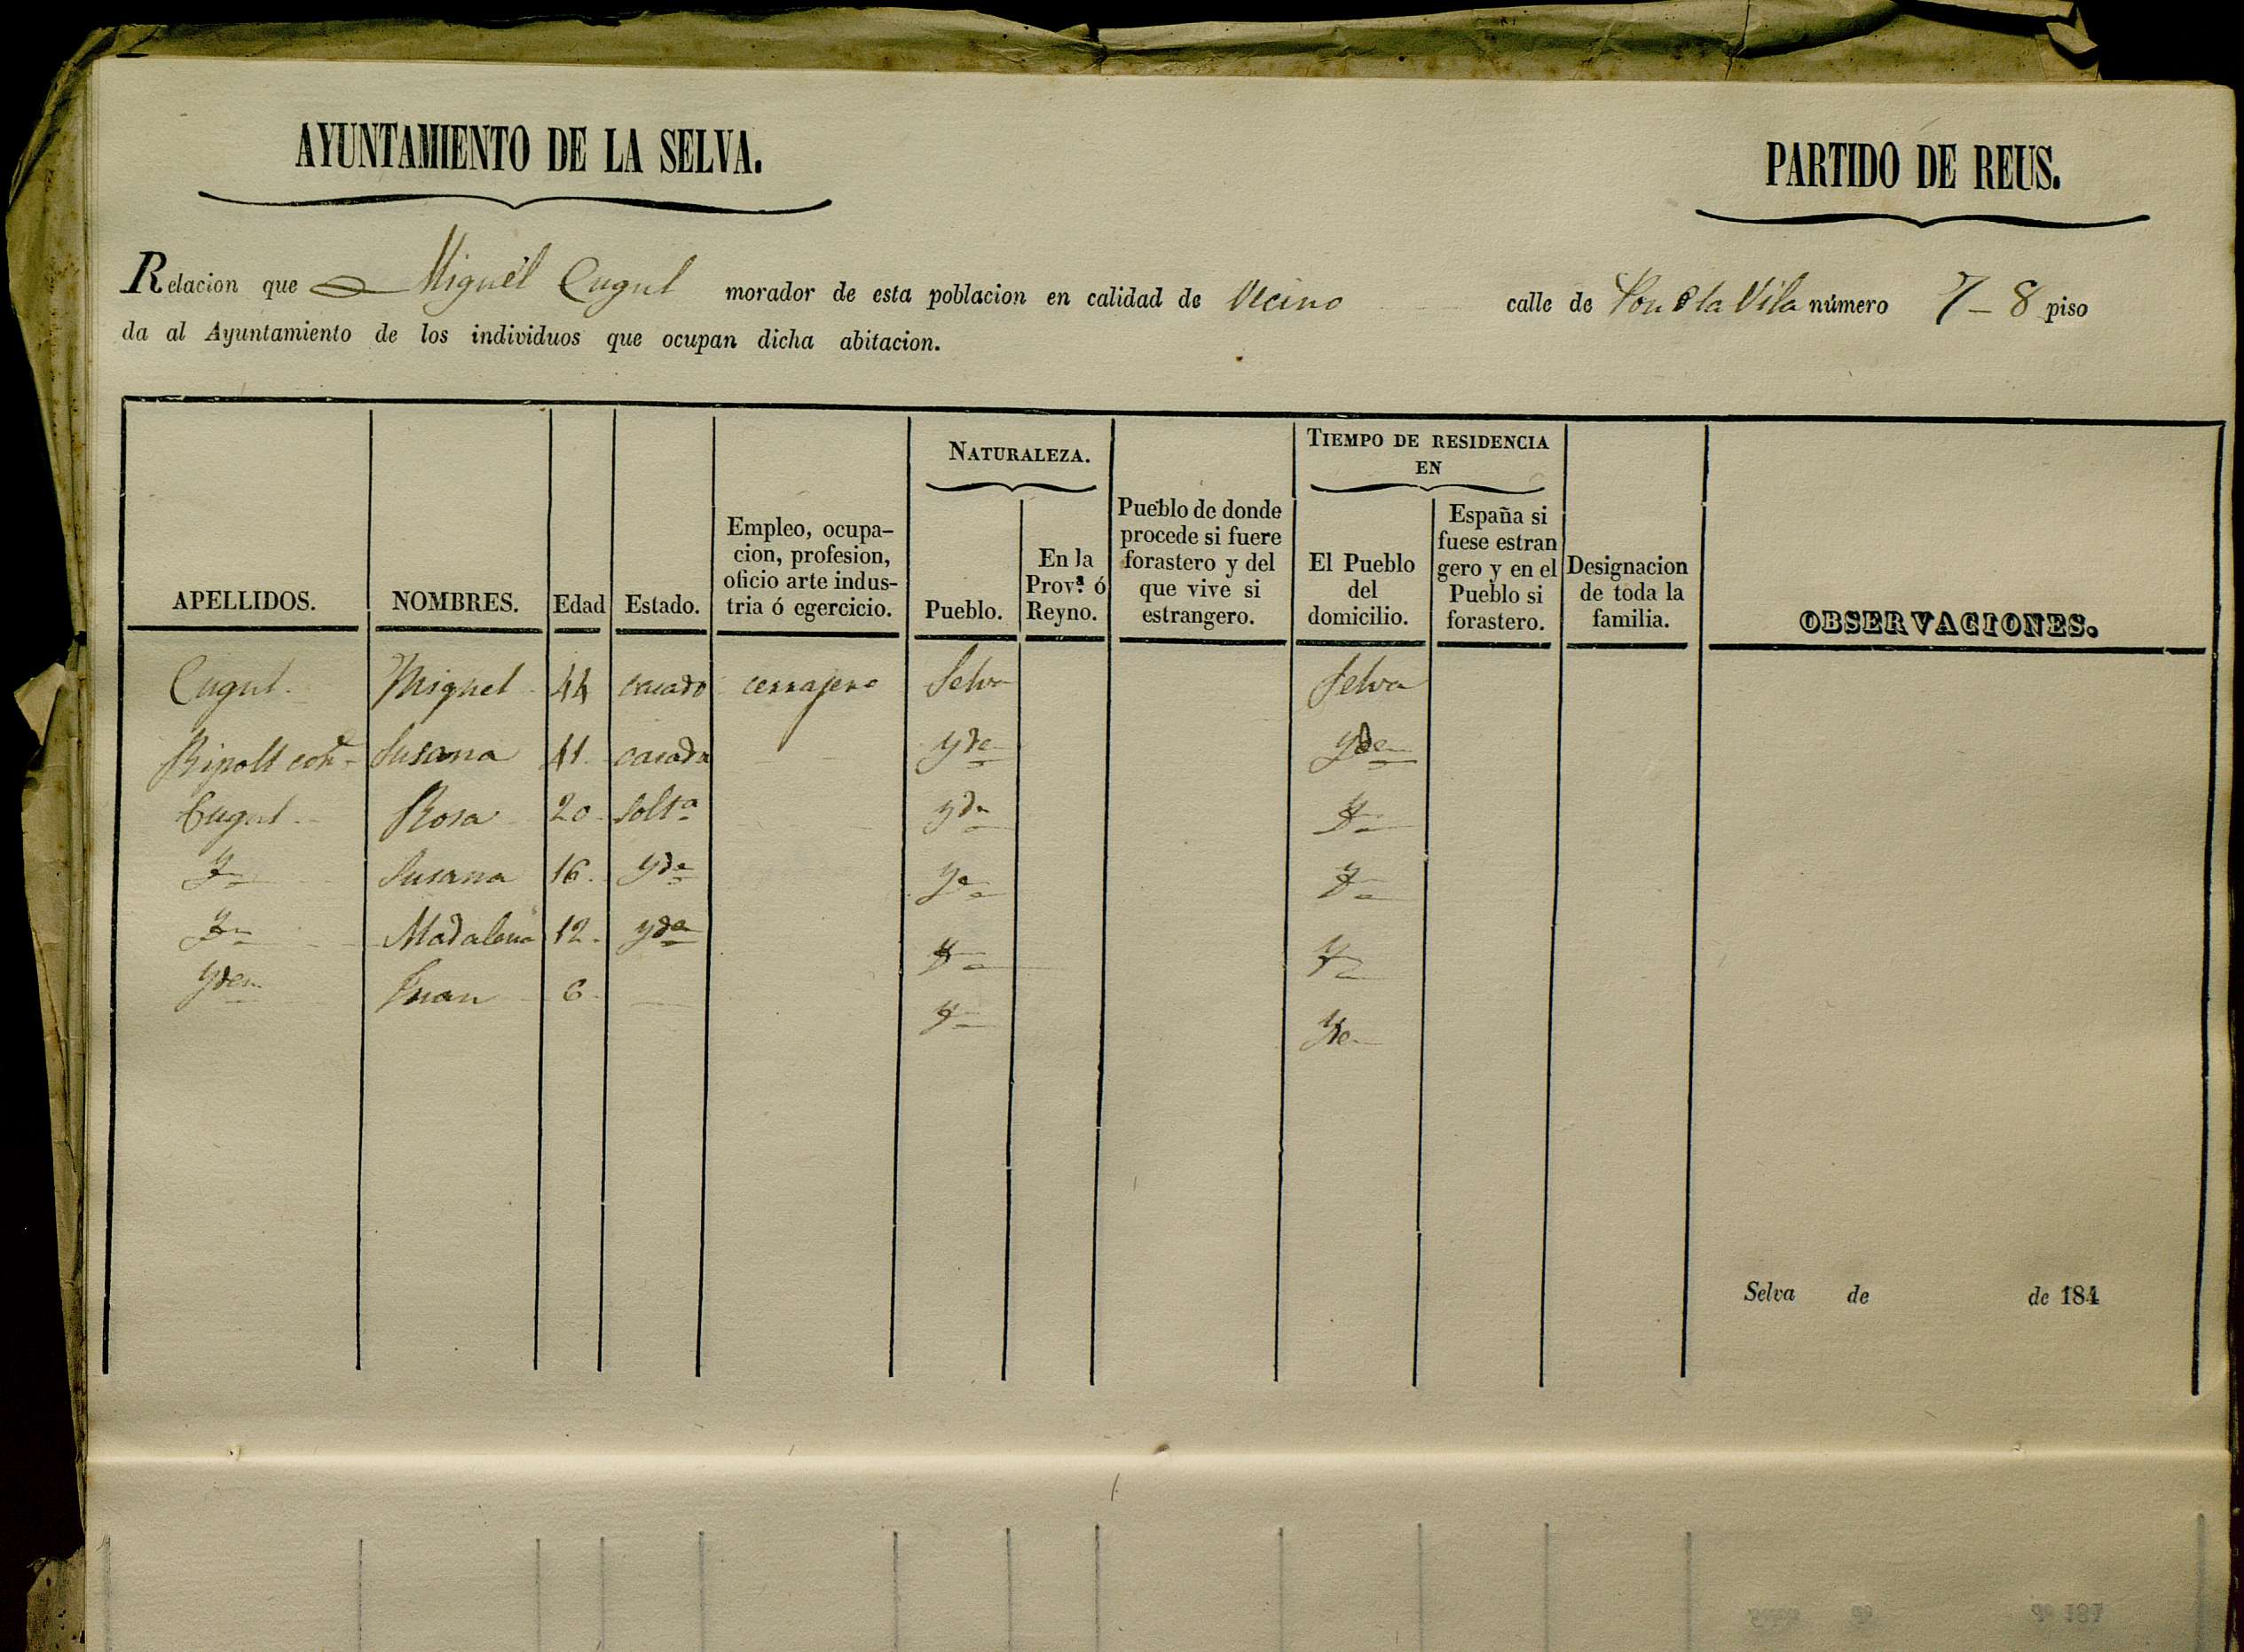 AYUNTAMIENTO DE LA SELVA. PARTIDO DE REUS.
Relacion que Miguel Cugul morador de esta poblacion en calidad de Vecino calle de la Vila número 7 - 8 piso
da al Ayuntamiento de los individuos que ocupan dicha abitacion.
APELLIDOS. NOMBRES. Edad Estado. Empleo, ocupa-
cion, profesion,
oficio arte indus-
tria ó egercicio.
NATURALEZA.
Pueblo. En la
Prov.ª ó
Reyno.
Pueblo de donde
procede si fuere
forastero y del
que vive si
estrangero.
TIEMPO DE RESIDENCIA
EN
El Pueblo
del
domicilio.
España si
fuese estran
gero y en el
Pueblo si
forastero.
Designacion
de toda la
familia.
OBSERVACIONES.
Cugul. Miguel 44 casado cerrajero Selva Selva
Ripoll Susana 41. casada yde yde
Cugul. Rosa 20. Solt.a yde
Susana 16. yde
Madalena 12. yde
Yden Juan 6.
Selva de de 184